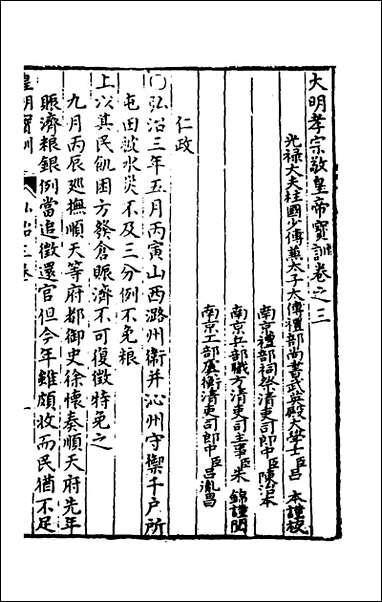 大明孝宗敬皇帝寶訓卷之三
光祿大夫柱國少傅兼太子太傅禮部尚書武英殿大學士臣呂 本謹校
南京禮部祠祭清吏司郎中臣陳治本
南京兵部職方清吏司主事臣朱 錦謹閱
南京工部虞衡清吏司郎中臣呂胤昌
仁政
○弘治三年五月丙寅山西潞州衛并沁州守禦千戶所
屯田被水災不及三分例不免糧
上以其民飢困方發倉賑濟不可復徵特免之
九月丙辰廵撫順天等府都御史徐懷奏順天府先年
賑濟粮銀例當追徵還官但今年雖頗收而民猶不足
皇明寶訓 弘治三卷 一